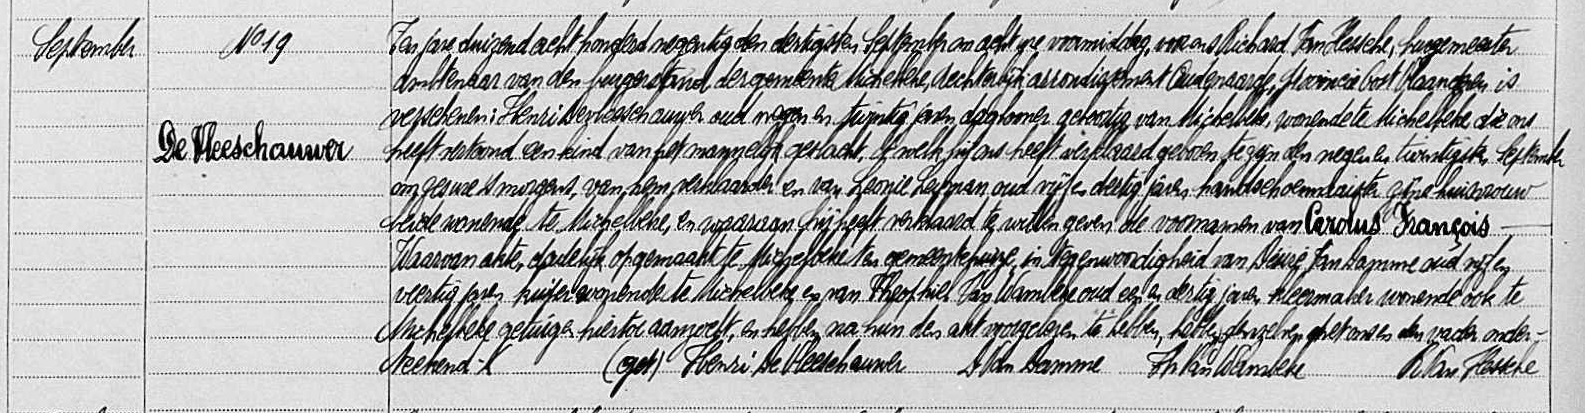 September
No 19
De Vleeschauwer
Ten jare duizend acht honderd negentig den dertigsten September om acht ure voormiddag, voor ons Richard Van Hessche, burgemeester
ambtenaar van den burgerstand der gemeente Michelbeke, rechterlijk arrondissement Oudenaarde, provincie Oost Vlaanderen is
verschenen: Henri De Vleeschauwer oud negen en twintig jaren dagloner geboortig van Michelbeke, wonende te Michelbeke die ons
heeft vertoond een kind van het mannelijk geslacht, welk hij ons heeft verklaard geboren te zijn den negen en twintigsten September
om ure 's morgens, van hem verklaarder en van Leonie oud vijf en dertig jaren handschoenmaakster zijne huisvrouw
beide wonende te Michelbeke, en waaraan hij heeft verklaard te willen geven de voornamen van Carolus François
Waarvan akte, dadelijk opgemaakt te Michelbeke ten gemeentehuize, in tegenwoordigheid van Désiré Van Damme oud vijf en
veertig jaren wonende te Michelbeke en van Theophiel Van Wambeke oud een en dertig jaren kleermaker wonende ook te
Michelbeke getuigen hiertoe aanzocht, en hebben na hun den akt voorgelezen te hebben, met ons en den vader onder-
teekend
(get) Henri De Vleeschauwer D Van Damme Th Van Wambeke R Van Hessche